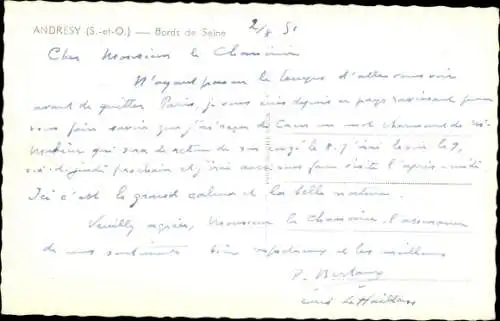 ANDRESY (S.-et-O.) — Bords de Seine
2/8 51
Cher Monsieur le Chanoine
N'ayant pas eu le temps d'aller vous voir
avant de quitter Paris, je vous écris depuis ce pays ravissant pour
vous faire savoir que j'ai reçu de un mot de
qui sera de retour de son congé le 8. j'irai le voir le 9,
c.à.d. jeudi prochain et j'irai aussi vous faire visite l'après-midi
Ici c'est le grand calme et la belle nature.
Veuillez agréer, Monsieur le Chanoine, l'assurance
de mes sentiments bien respectueux et les meilleurs
curé